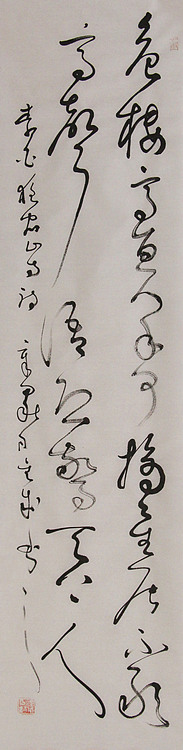 危樓高百尺手可摘星辰不敢
高聲語恐驚天上人
李白夜宿山寺詩